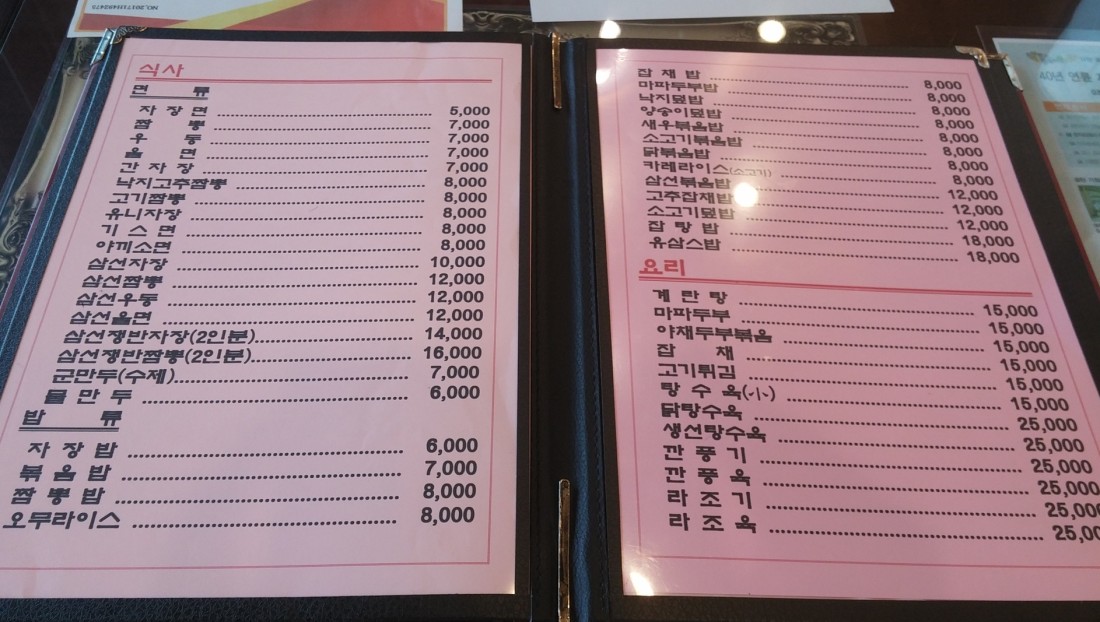 NO.2017H492473
식사
면 류
자장면 5,000
짬뽕 7,000
우동 7,000
울면 7,000
간자장 7,000
낙지고추짬뽕 8,000
고기짬뽕 8,000
유니자장 8,000
기스면 8,000
야끼소면 8,000
삼선자장 10,000
삼선짬뽕 12,000
삼선우동 12,000
삼선울면 12,000
삼선쟁반자장(2인분) 14,000
삼선쟁반짬뽕(2인분) 16,000
군만두(수제) 7,000
물만두 6,000
밥 류
자장밥 6,000
볶음밥 7,000
짬뽕밥 8,000
오무라이스 8,000
잡채밥 8,000
마파두부밥 8,000
낙지덮밥 8,000
양송이덮밥 8,000
새우볶음밥 8,000
소고기볶음밥 8,000
닭볶음밥 8,000
카레라이스(소고기) 8,000
삼선볶음밥 12,000
고추잡채밥 12,000
소고기덮밥 12,000
잡탕밥 18,000
유삼스밥 18,000
요리
계란탕 15,000
마파두부 15,000
야채두부볶음 15,000
잡채 15,000
고기튀김 15,000
탕수육(小) 15,000
닭탕수육 25,000
생선탕수육 25,000
깐풍기 25,000
깐풍육 25,000
라조기 25,000
라조육 25,000
40년